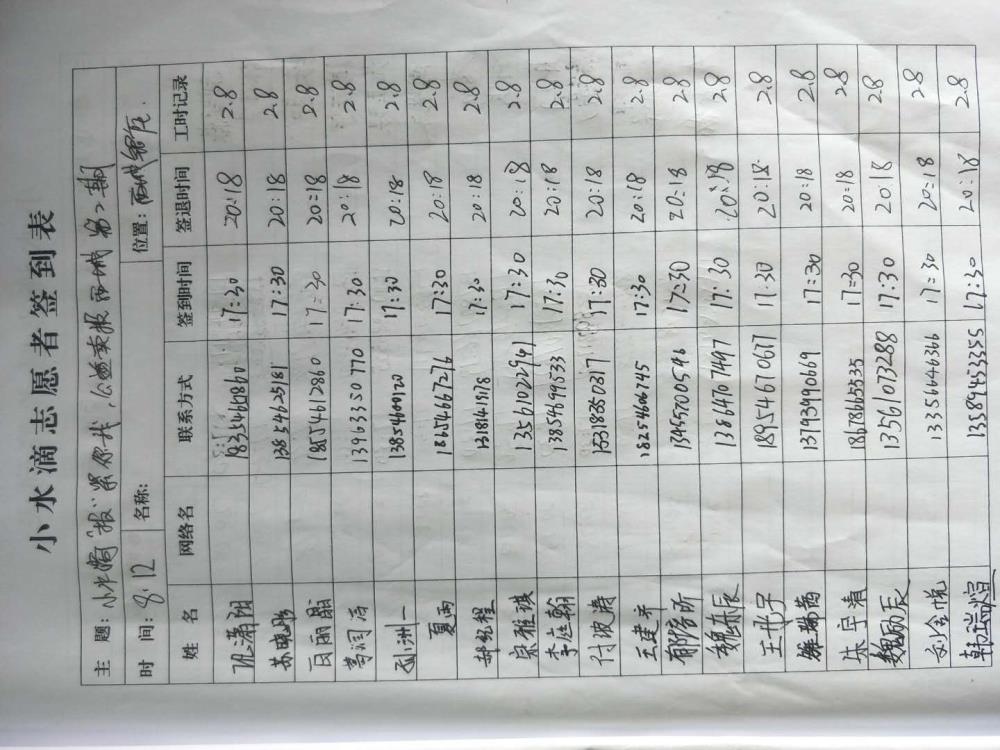 小水滴志愿者签到表
主 题: 小水滴"报"累你我,公益卖报西城第2期
时 间: 8.12 名称: 位置:
姓 名 网络名 联系方式 签到时间 签退时间 工时记录
17:30 20:18 2.8
苏晓彤 13854625181 17:30 20:18 2.8
吕丽晶 18554612860 17:30 20:18 2.8
葛闰 13963350770 17:30 20:18 2.8
孙洲一 13854600120 17:30 20:18 2.8
夏雨 18654667276 17:30 20:18 2.8
17:30 20:18 2.8
宋雅琪 13561022941 17:30 20:18 2.8
李庄翰 13854699533 17:30 20:18 2.8
付波涛 15318350317 17:30 20:18 2.8
王建平 18254606745 17:30 20:18 2.8
郁培昕 13495700546 17:30 20:18 2.8
魏东辰 13864707497 17:30 20:18 2.8
王彤宇 18954670617 17:30 20:18 2.8
雒瑞茜 13793990669 17:30 20:18 2.8
朱宇清 18678665535 17:30 20:18 2.8
魏励辰 13561073288 17:30 20:18 2.8
刘金悦 13356646366 17:30 20:18 2.8
韩瑞煊 13589453355 17:30 20:18 2.8